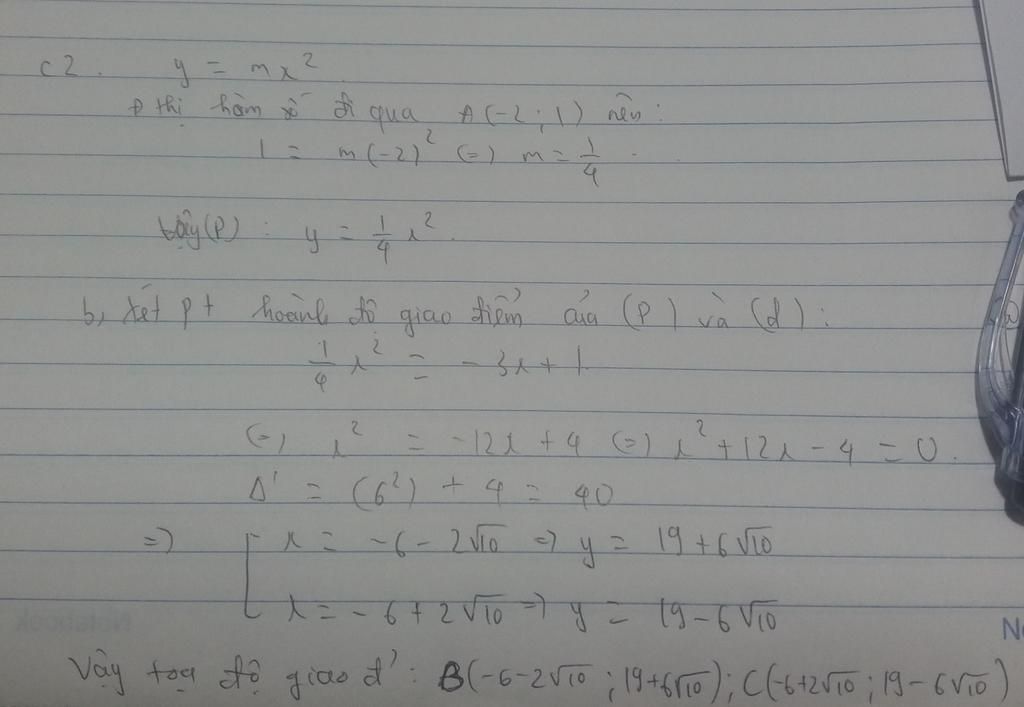 c2. y = mx²
Đ thị hàm số đi qua A(-2;1) nên:
1 = m(-2)² (=) m = 1/4.
Vậy (P): y = 1/4 x².
b, Xét pt hoành độ giao điểm của (P) và (d):
1/4 x² = -3x + 1
(=) x² = -12x + 4 (=) x² + 12x - 4 = 0.
Δ' = (6²) + 4 = 40
=) [ x = -6 - 2√10 => y = 19 + 6√10
x = -6 + 2√10 => y = 19 - 6√10
Vậy toạ độ giao đ': B(-6-2√10; 19+6√10); C(-6+2√10; 19-6√10)